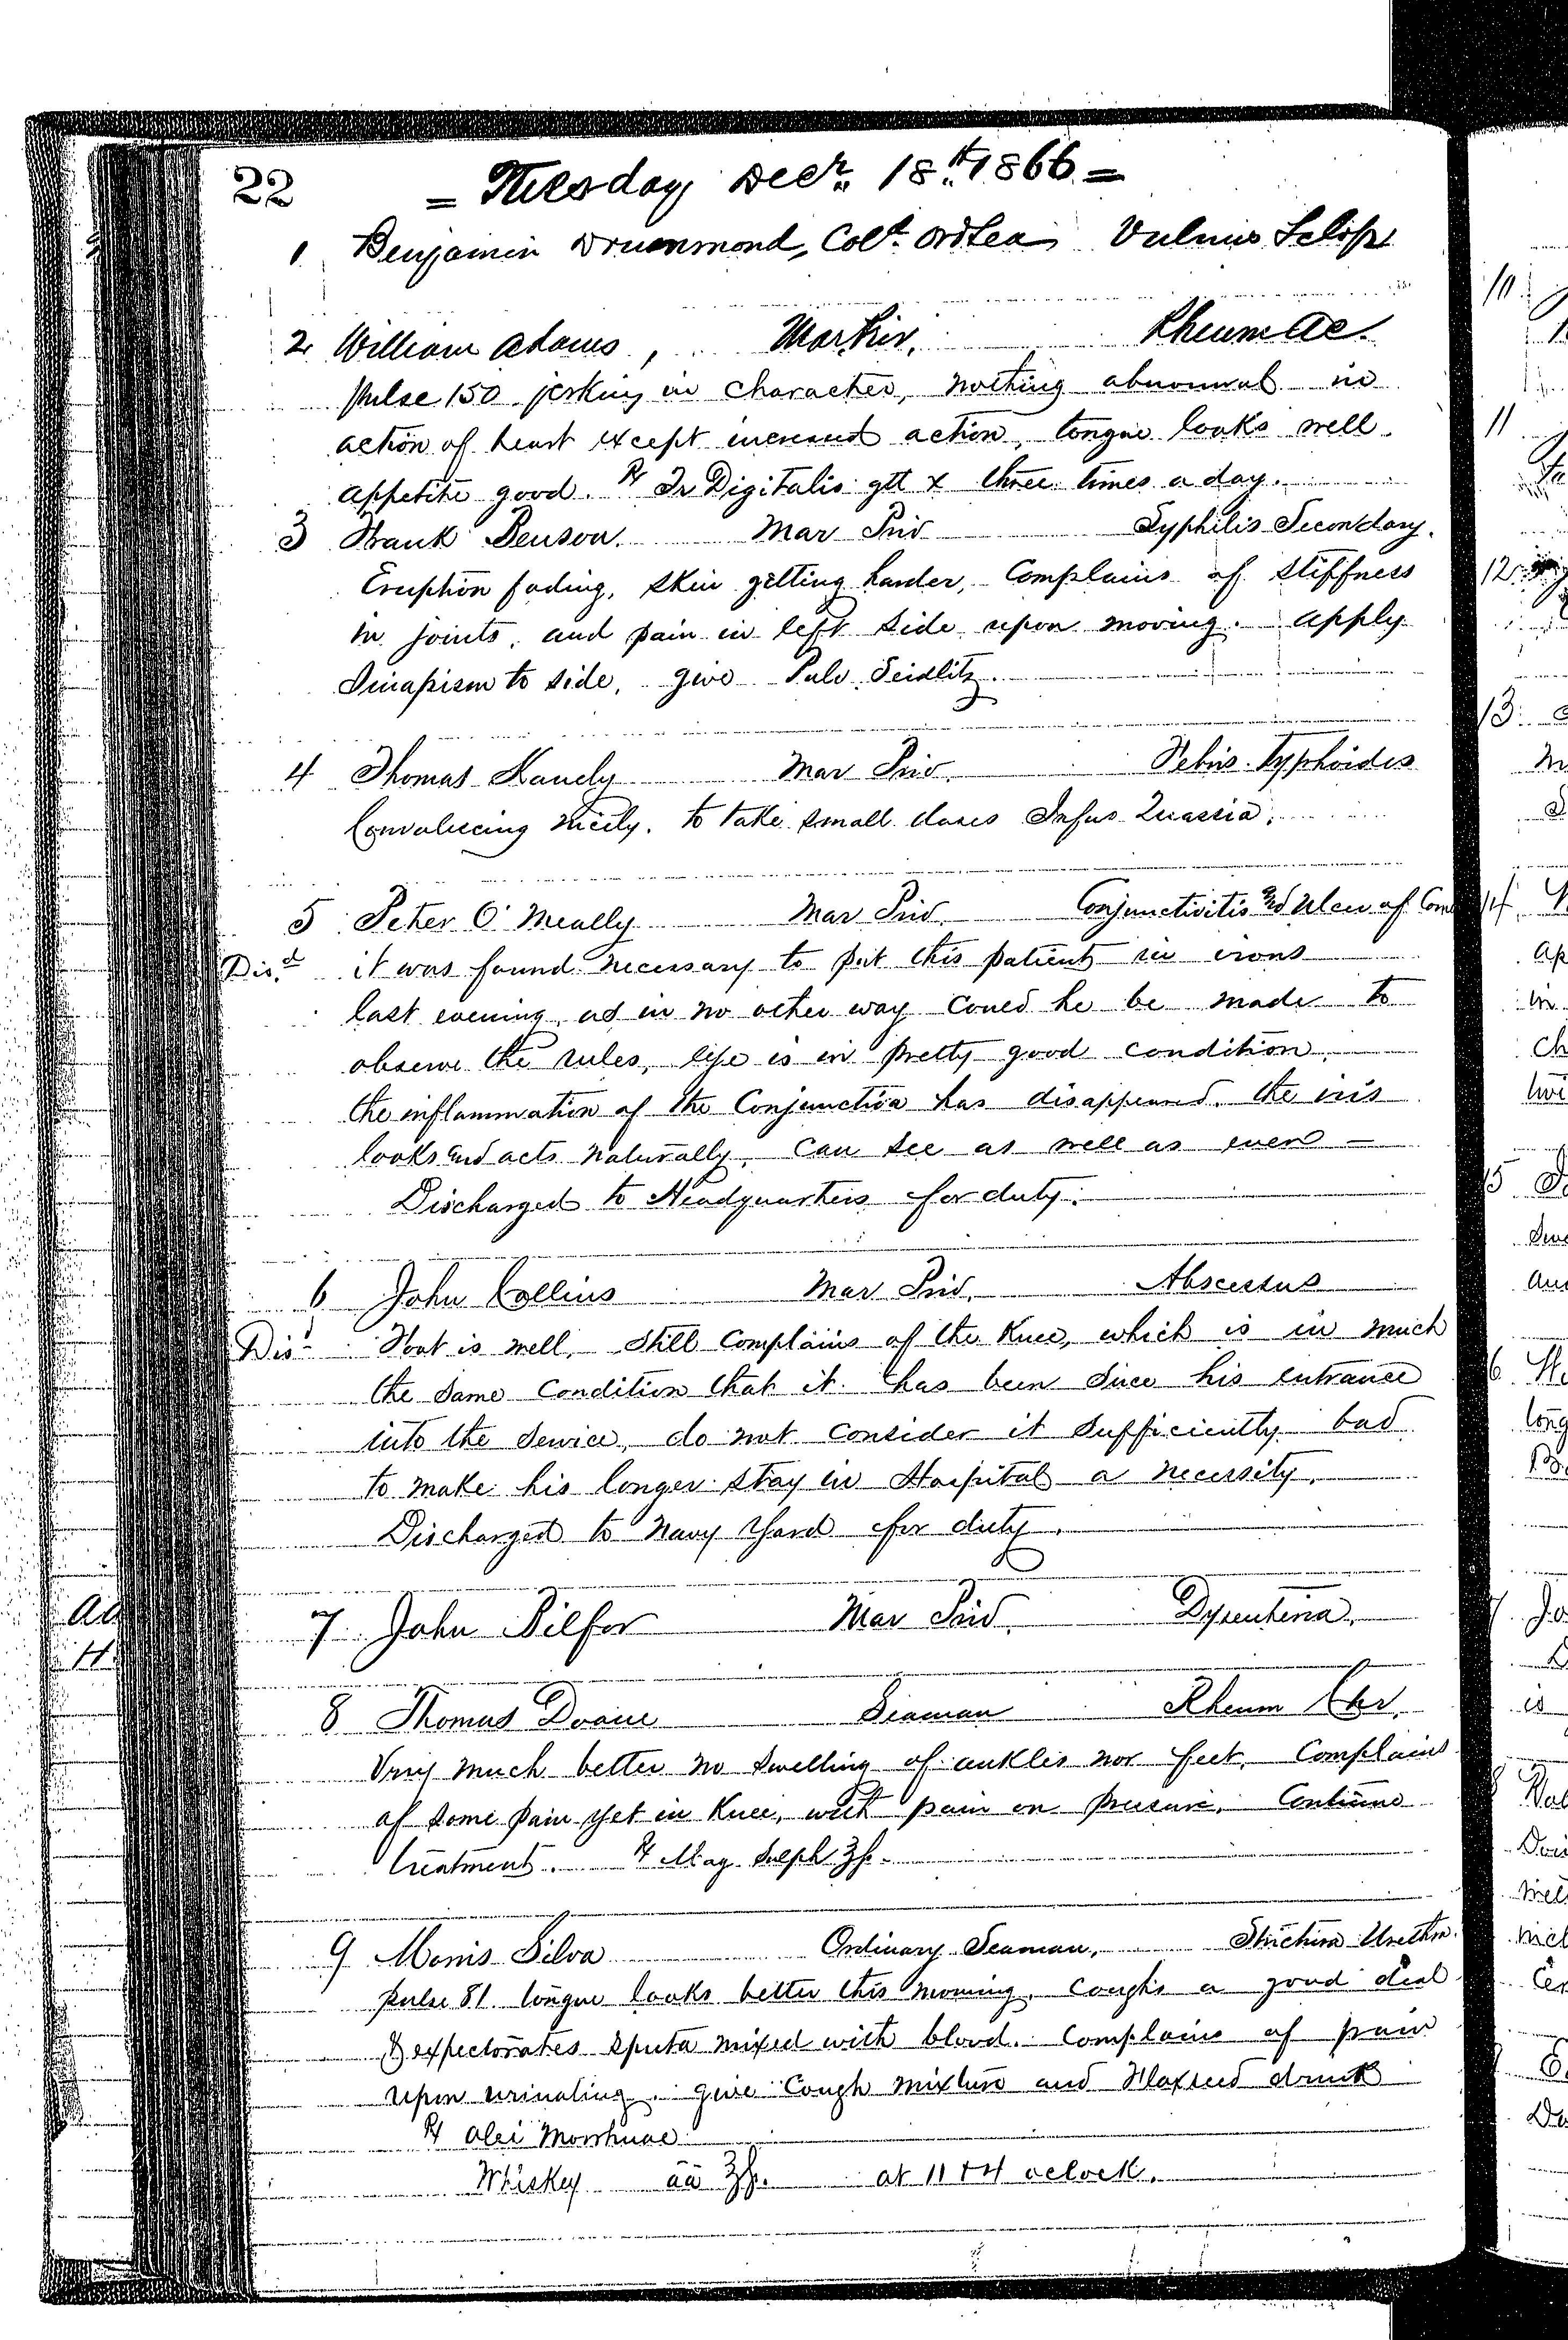 22 = Tuesday Decr. 18th. 1866 =
1 Benjamin Drummond, Cold. Ord Sea Vulnus Sclop
2 William Adams, Mar Priv. Rheum Ac.
Pulse 150 jerking in character, nothing abnormal in
action of heart except increased action, tongue looks well.
appetite good. ℞ Tr Digitalis gtt x three times a day.
3 Frank Benson. Mar Priv Syphilis Secondary.
Eruption fading, skin getting harder, Complains of stiffness
in joints, and pain in left side upon moving. apply
Sinapism to side, give Pulv. Seidlitz.
4 Thomas Mar Priv. Febris Typhoides
Convalescing nicely. to take small doses Infus Quassia.
5 Peter O'Meally Mar Priv. Conjunctivitis and Ulcer of
Disd. it was found necessary to put this patient in irons
last evening, as in no other way could he be made to
observe the rules, eye is in pretty good condition.
the inflammation of the Conjunctiva has disappeared. the iris
looks and acts naturally, can see as well as ever —
Discharged to Headquarters for duty.
6 John Collins Mar Priv. Abscessus
Disd. Foot is well, still complains of the Knee, which is in much
the same condition that it has been since his entrance
into the service, do not consider it sufficiently bad
to make his longer stay in Hospital a necessity.
Discharged to Navy Yard for duty.
7 John Pilfor Mar Priv. Dysenteria.
8 Thomas Doane Seaman Rheum Chr.
Very much better no swelling of ankles nor feet, Complains
of some pain yet in Knee, with pain on pressure. Continue
treatment. ℞ Mag Sulph ℥ss.
9 Morris Silva Ordinary Seaman, Strictura Urethra.
pulse 81 tongue looks better this morning. coughs a good deal
& expectorates sputa mixed with blood. Complains of pain
upon urinating. give Cough mixture and Flaxseed drink
℞ Olei Morrhuae
Whiskey āā ℥ss. at 11 & 4 oclock.